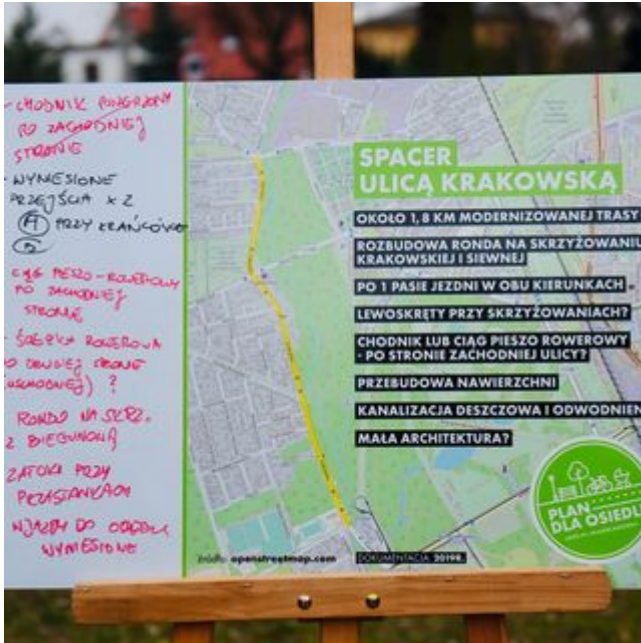 - CHODNIK POSZERZONY
PO ZACHODNIEJ
STRONIE
- WYNIESIONE
PRZEJŚCIA x 2
PRZY KRAŃCÓWCE
CIĄG PIESZO-ROWEROWY
PO ZACHODNIEJ
STRONIE
- ŚCIEŻKA ROWEROWA
PO DRUGIEJ STRONIE
(WSCHODNIEJ) ?
RONDO NA SKRZ.
Z BIEGUNOWĄ
ZATOKI PRZY
PRZYSTANKACH
WJAZDY DO
WYNIESIONE
SPACER
ULICĄ KRAKOWSKĄ
OKOŁO 1,8 KM MODERNIZOWANEJ TRASY
ROZBUDOWA RONDA NA SKRZYŻOWANIU
KRAKOWSKIEJ I SIEWNEJ
PO 1 PASIE JEZDNI W OBU KIERUNKACH
LEWOSKRĘTY PRZY SKRZYŻOWANIACH?
CHODNIK LUB CIĄG PIESZO ROWEROWY
- PO STRONIE ZACHODNIEJ ULICY?
PRZEBUDOWA NAWIERZCHNI
KANALIZACJA DESZCZOWA I ODWODNIEN
MAŁA ARCHITEKTURA?
PLAN
DLA OSIEDL
źródło: openstreetmap.com
DOKUMENTACJA: 2019R.